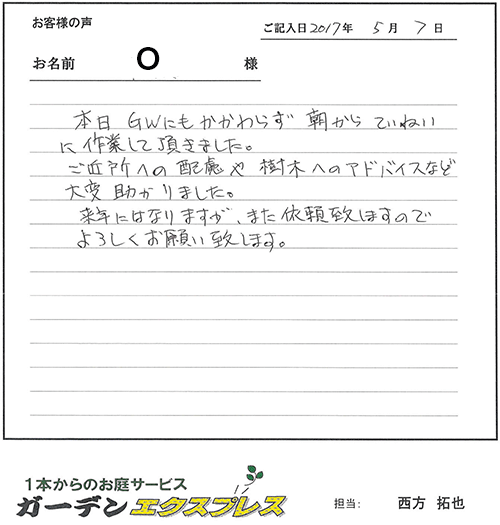 お客様の声
ご記入日2017年 5月 7日
お名前 O 様
本日 GWにもかかわらず 朝から ていねい
に作業して頂きました。
ご近所への配慮や樹木へのアドバイスなど
大変助かりました。
来年にはなりますが、また依頼致しますので
よろしくお願い致します。
1本からのお庭サービス
ガーデンエクスプレス
担当: 西方 拓也